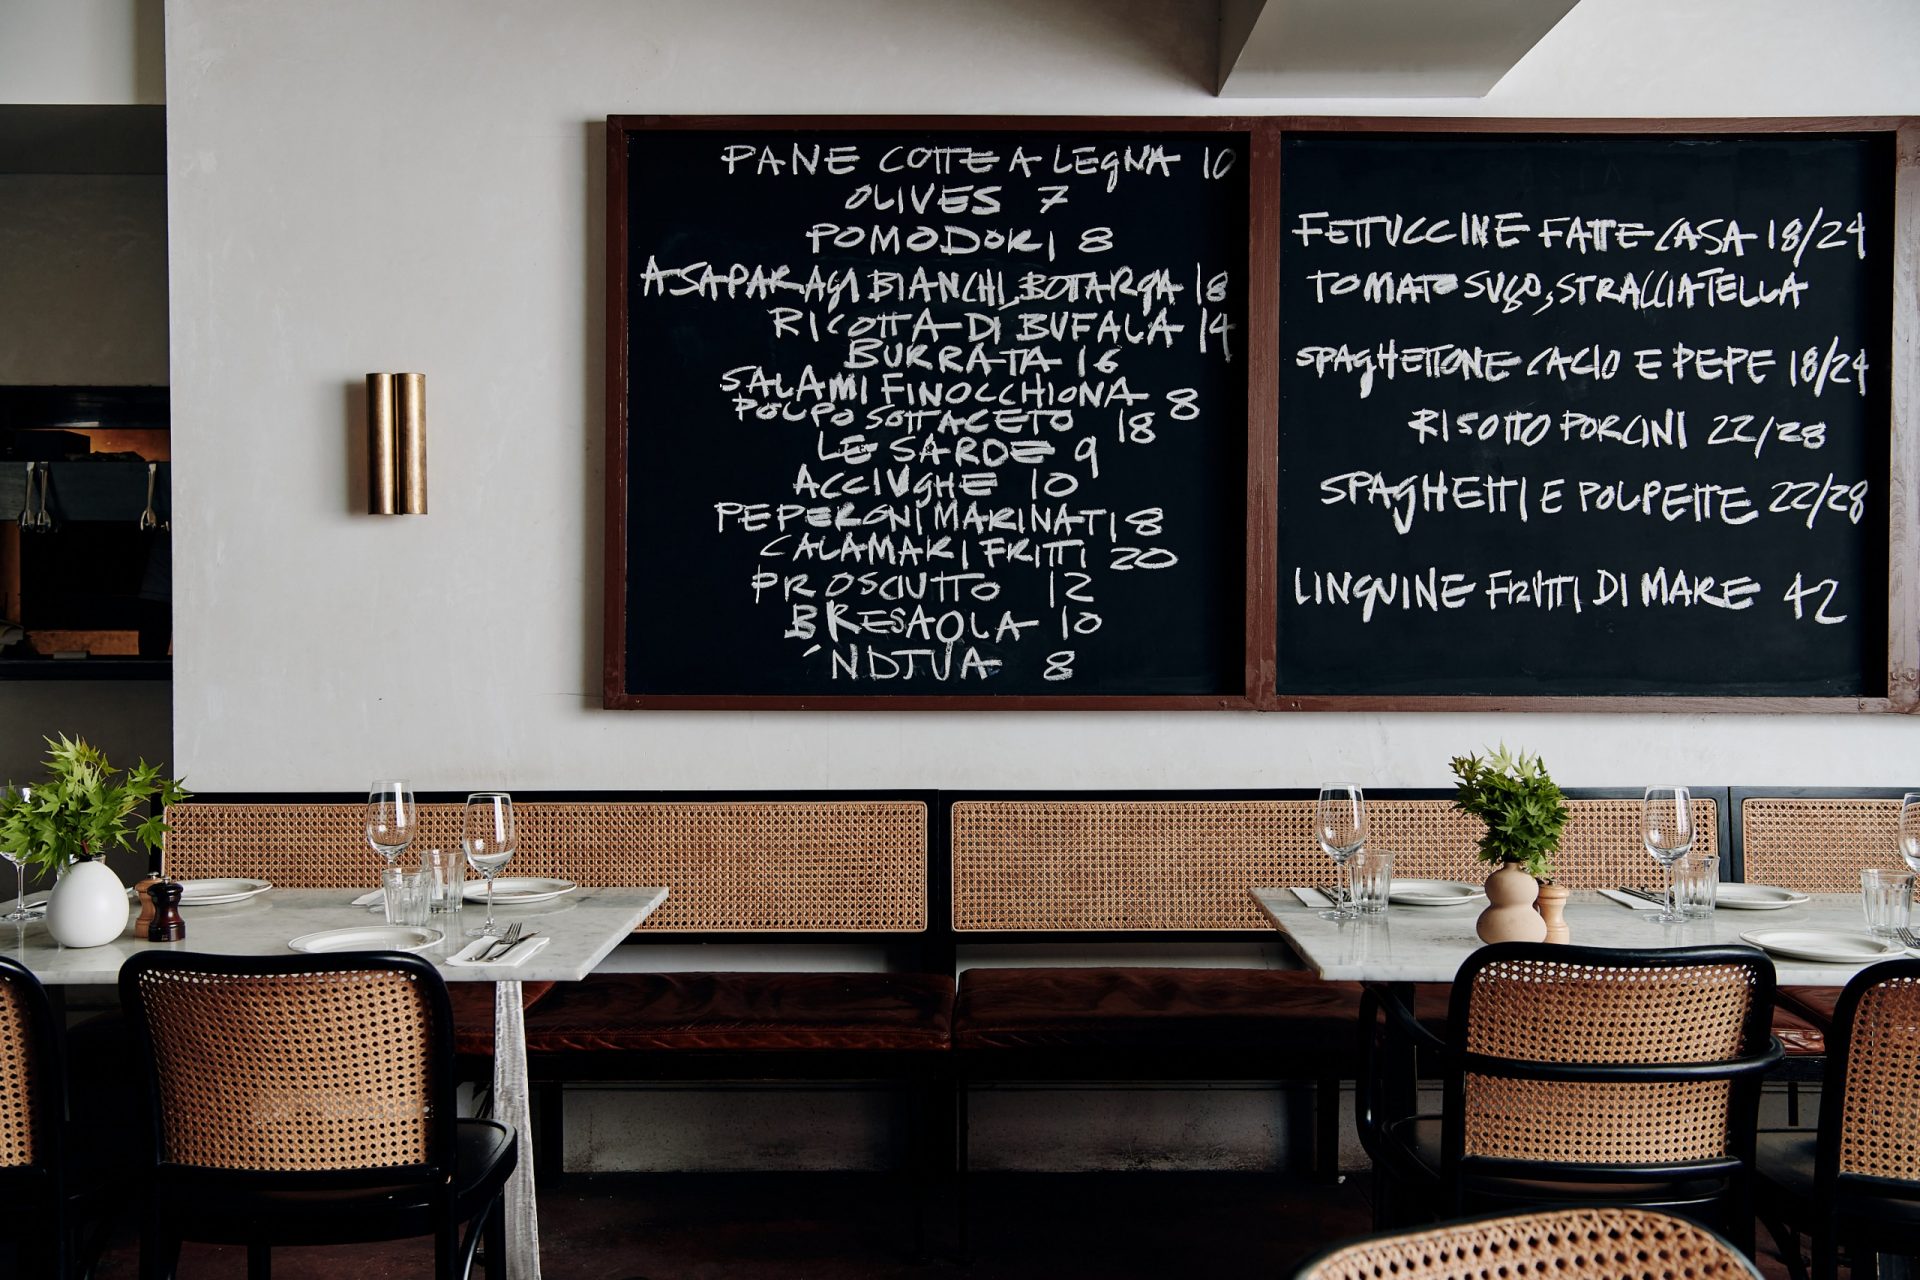 PANE COTTE A LEGNA 10
OLIVES 7
POMODORI 8
ASAPARAGI BIANCHI, BOTARGA 18
RICOTTA DI BUFALA 14
BURRATA 16
SALAMI FINOCCHIONA 8
POLPO SOTTACETO 18
LE SARDE 9
ACCIUGHE 10
PEPERONI MARINATI 8
CALAMARI FRITTI 20
PROSCIUTTO 12
BRESAOLA 10
'NDJUA 8
FETTUCCINE FATTE CASA 18/24
TOMATO SUGO, STRACCIATELLA
SPAGHETTONE CACIO E PEPE 18/24
RISOTTO PORCINI 22/28
SPAGHETTI E POLPETTE 22/28
LINGUINE FRUTTI DI MARE 42